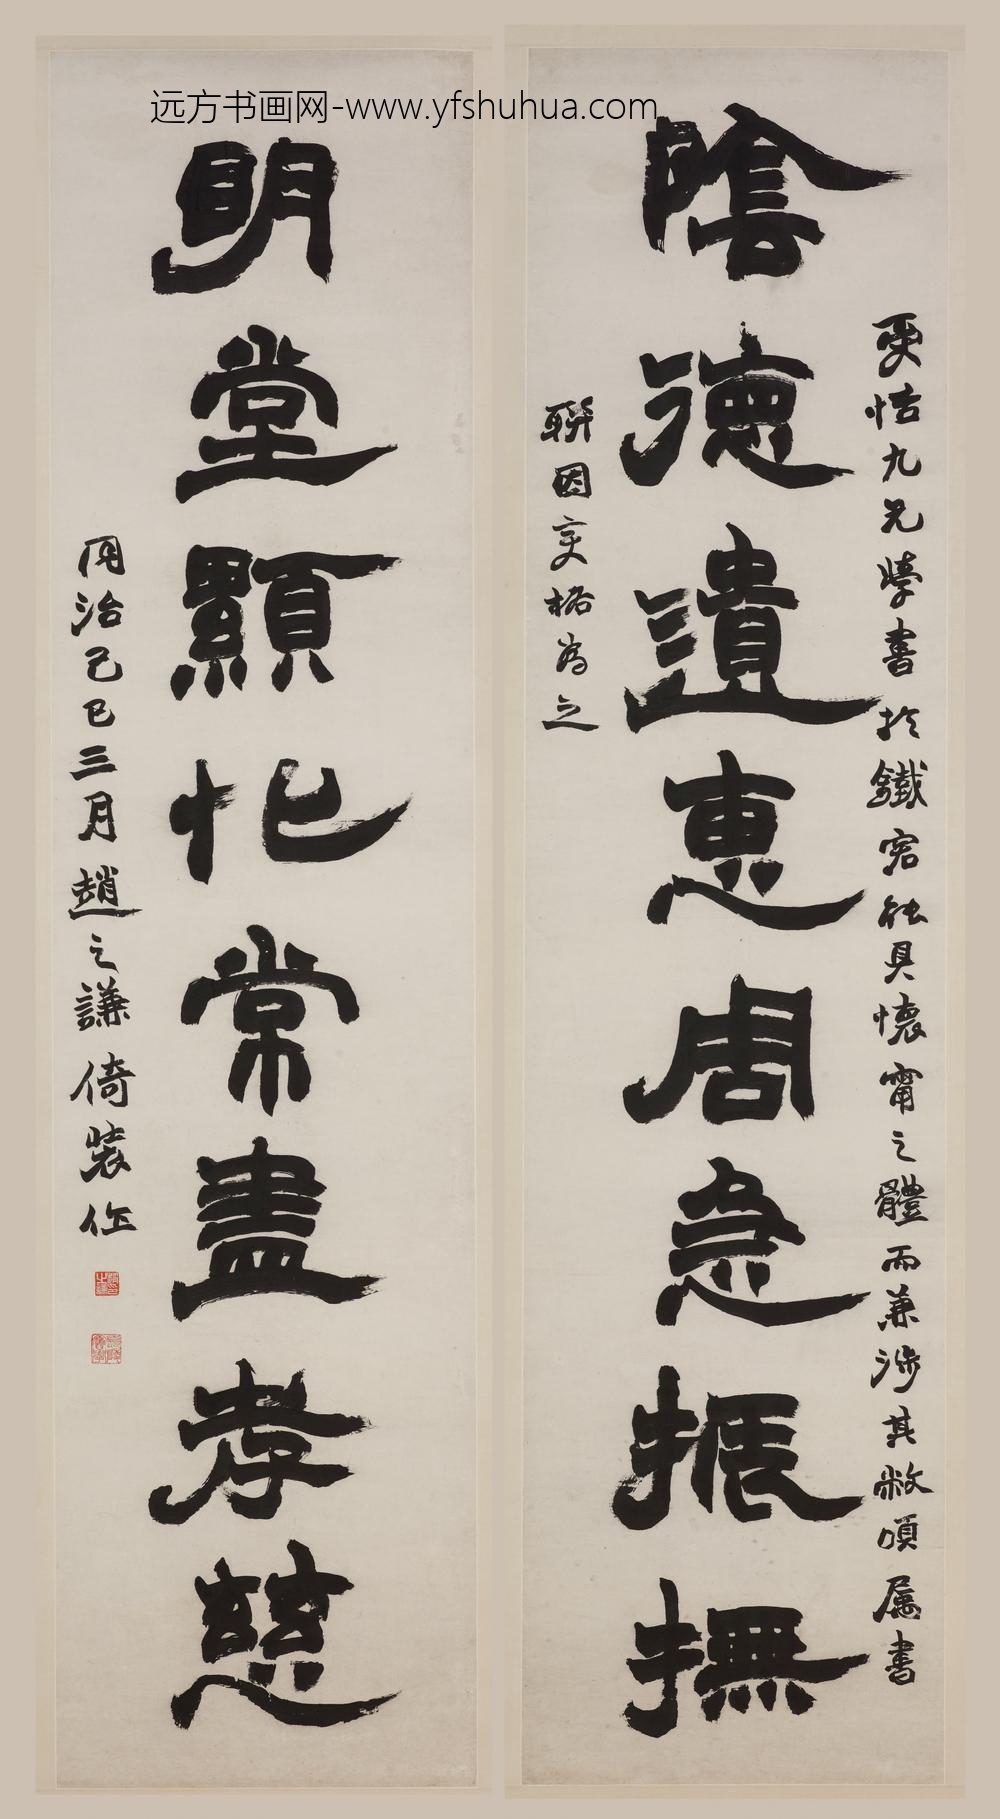 远方书画网-www.yfshuhua.com
陰德遺惠周急振撫
更恬九兄學書於鐵宕能具懷甯之體而兼涉其敝頃屬書
聯因变格為之
明堂顯化常盡孝慈
同治己巳三月趙之謙倚裝作